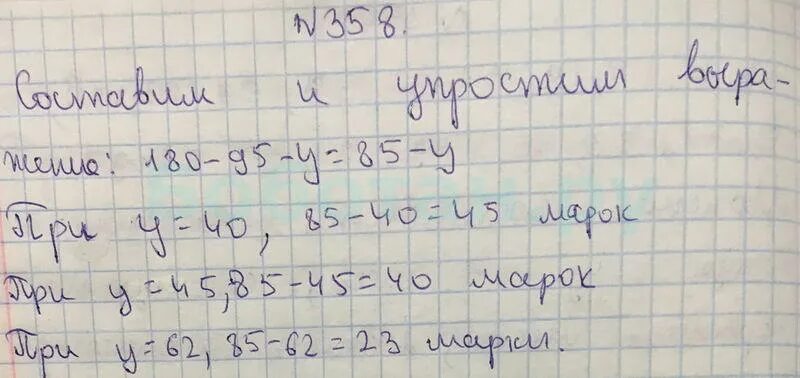 №358.
Составим и упростим выра-
жение: 180-95-y=85-y
При y=40, 85-40=45 марок
При y=45, 85-45=40 марок
При y=62, 85-62=23 марки.